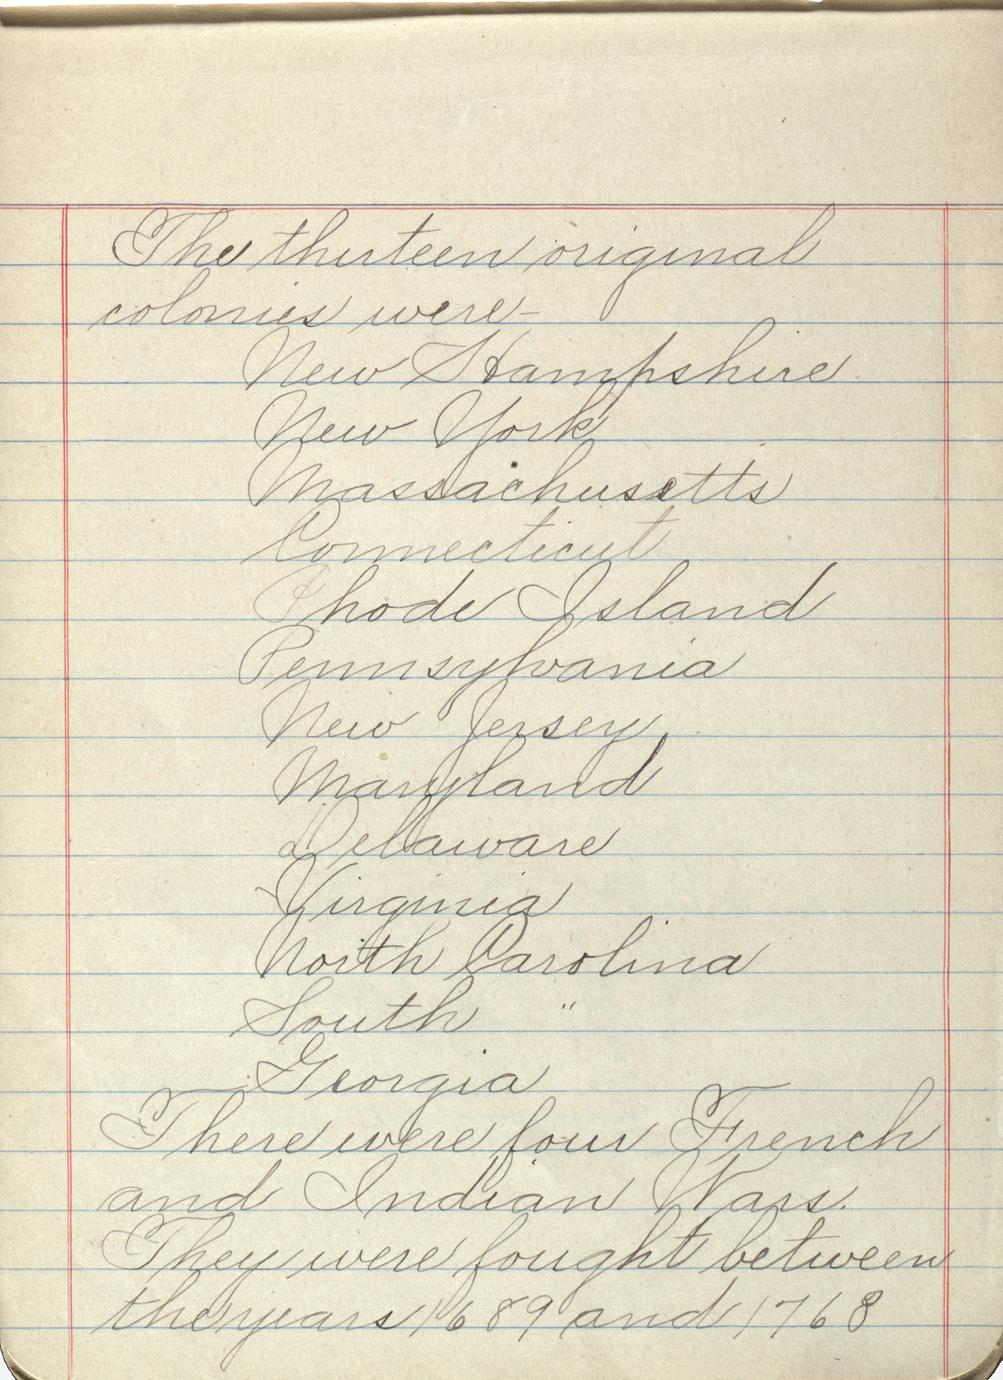 The thirteen original
colonies were-
New Hampshire
New York
Massachusetts
Connecticut
Rhode Island
Pennsylvania
New Jersey
Maryland
Delaware
Virginia
North Carolina
South "
Georgia
There were four French
and Indian Wars.
They were fought between
the years 1689 and 1768